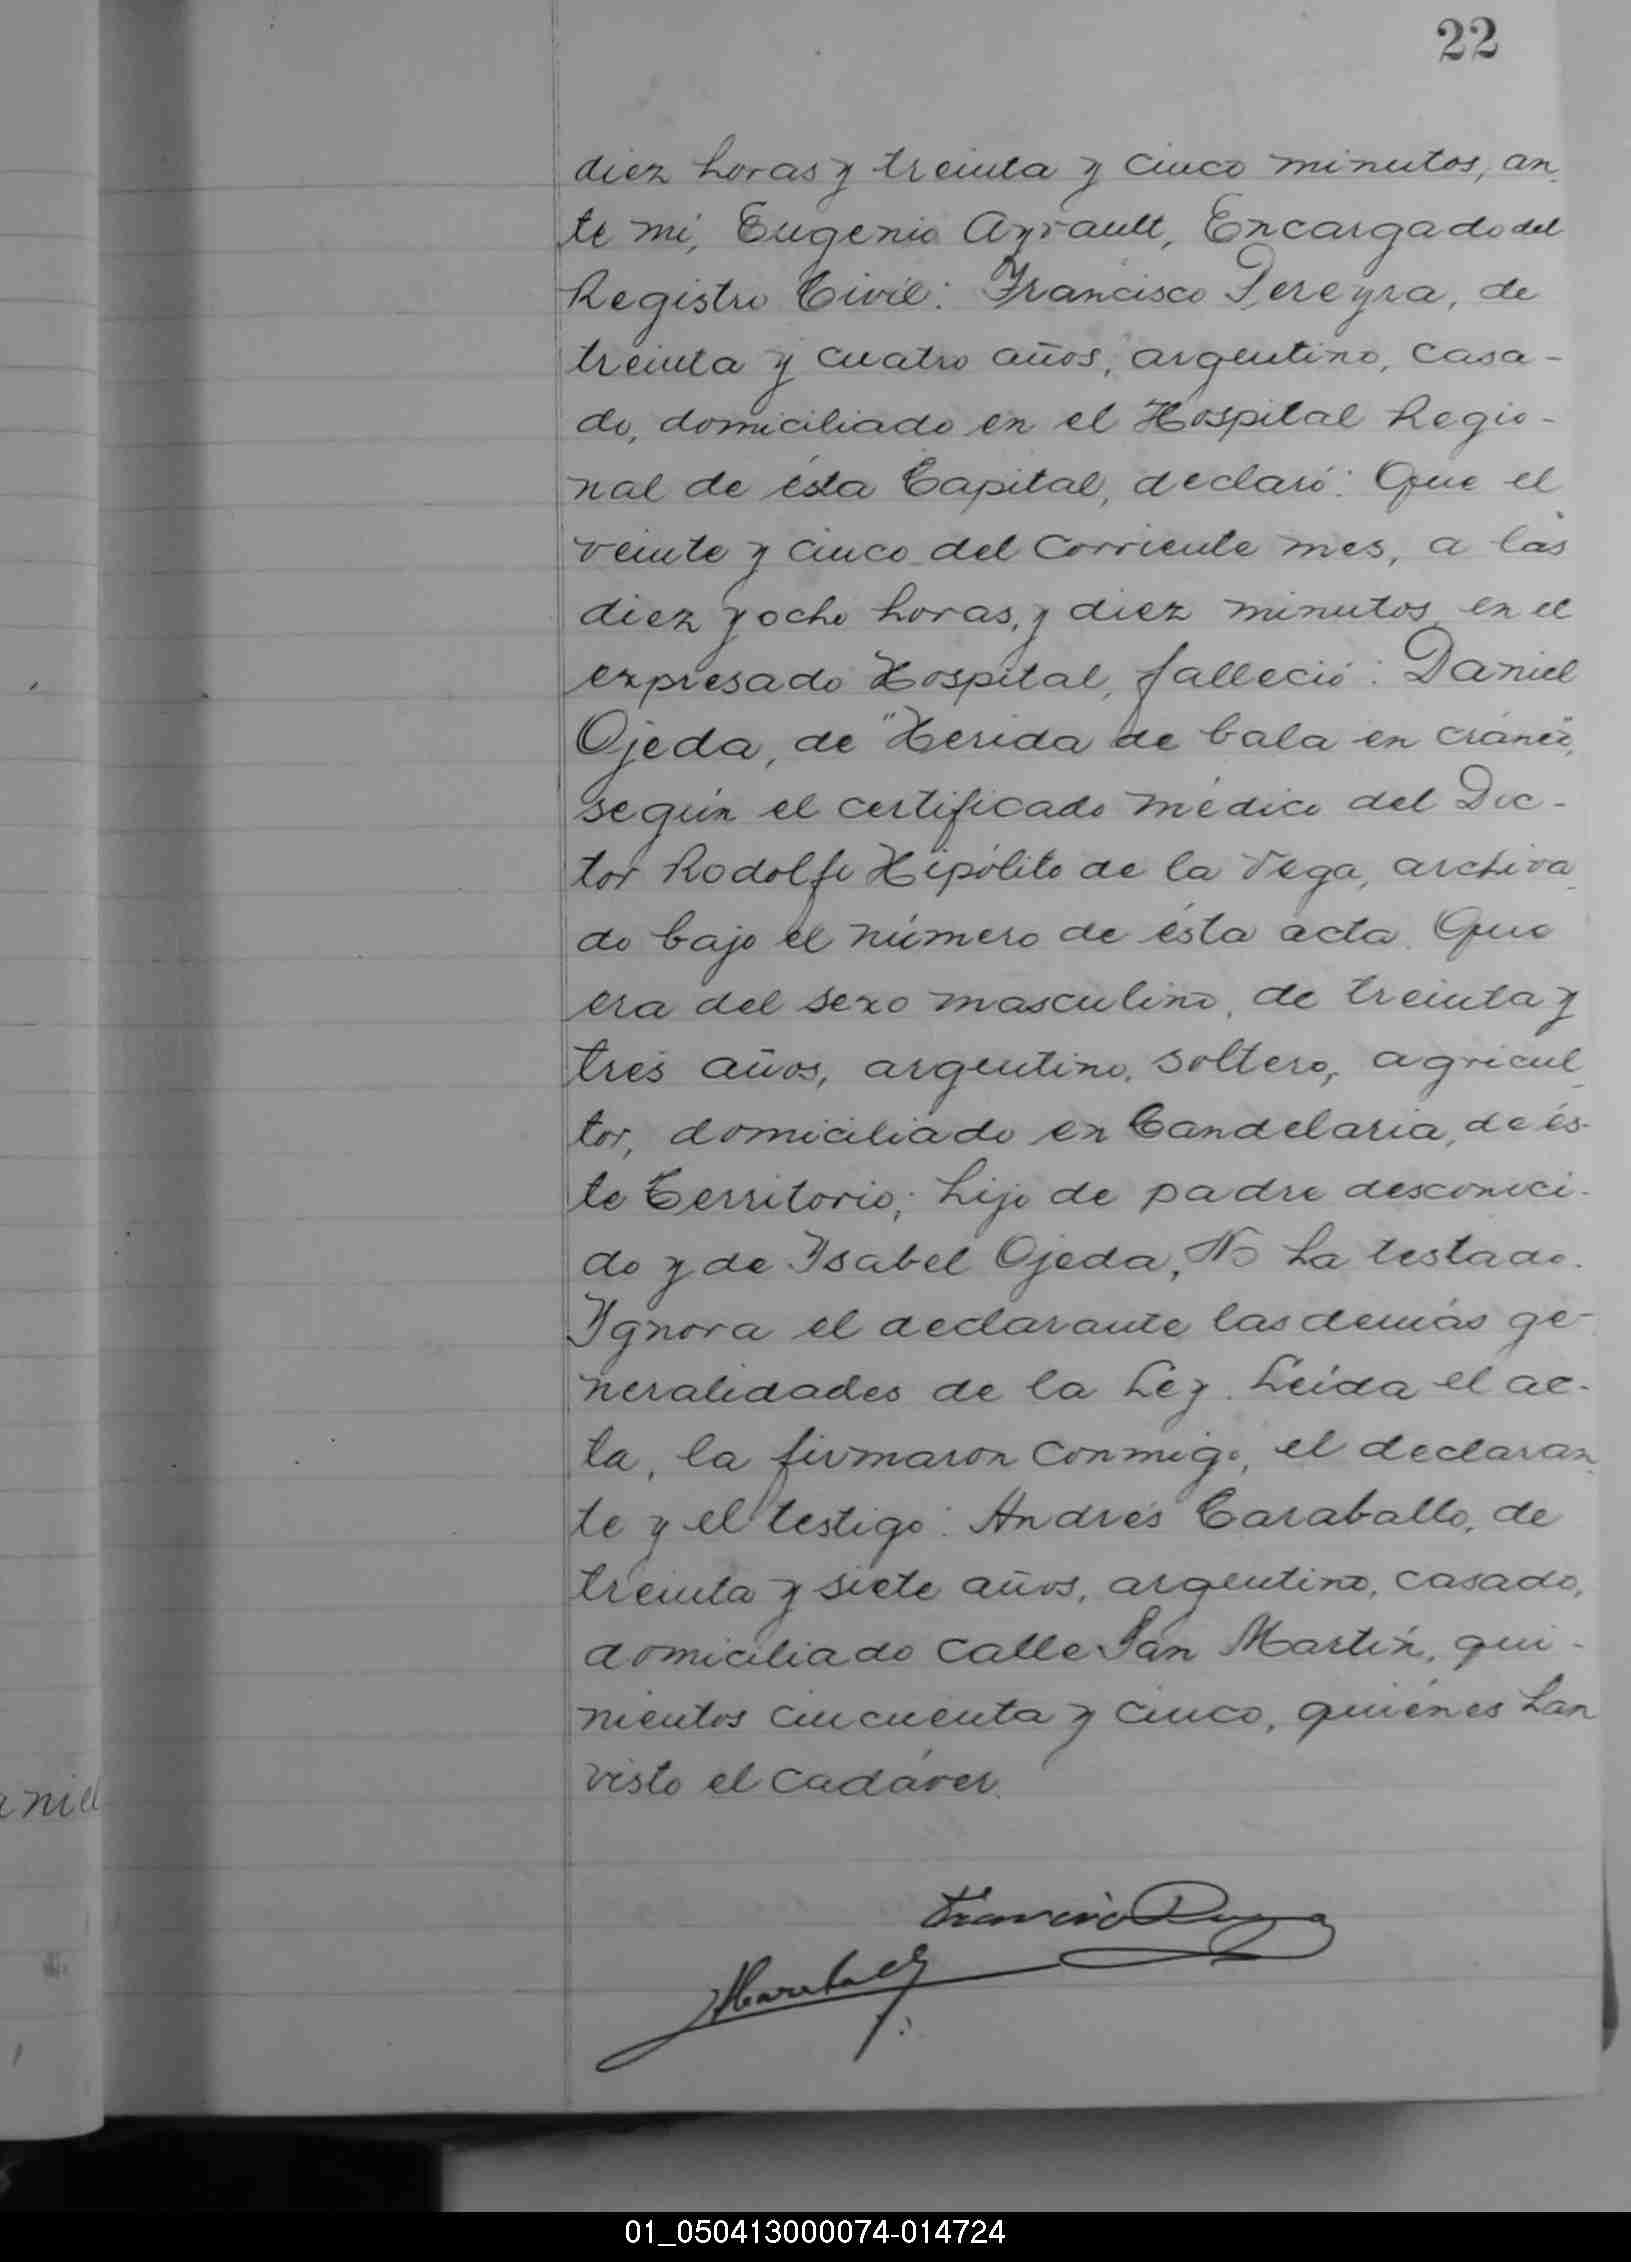 22
diez horas y treinta y cinco minutos, an-
te mí, Eugenio Ayrault, Encargado del
Registro Civil: Francisco Pereyra, de
treinta y cuatro años, argentino, casa-
do, domiciliado en el Hospital Regio-
nal de ésta Capital, declaró: Que el
veinte y cinco del corriente mes, a las
diez y ocho horas, y diez minutos, en el
expresado Hospital, falleció: Daniel
Ojeda, de "Herida de bala en cráneo",
según el certificado médico del Doc-
tor Rodolfo Hipólito de la Vega, archiva-
do bajo el número de ésta acta. Que
era del sexo masculino, de treinta y
tres años, argentino, soltero, agricul-
tor, domiciliado en Candelaria, de és-
te Territorio; hijo de padre desconoci-
do y de Isabel Ojeda, No ha testado.
Ignora el declarante las demás ge-
neralidades de la Ley. Leída el ac-
ta, la firmaron conmigo, el declaran-
te y el testigo: Andrés Caraballo, de
treinta y siete años, argentino, casado,
domiciliado calle San Martín, qui-
nientos cincuenta y cinco, quiénes han
visto el cadáver.
01_050413000074-014724